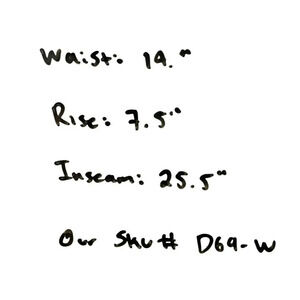 Waist: 14."
Rise: 7.5"
Inseam: 25.5"
Our Sku# D69-W